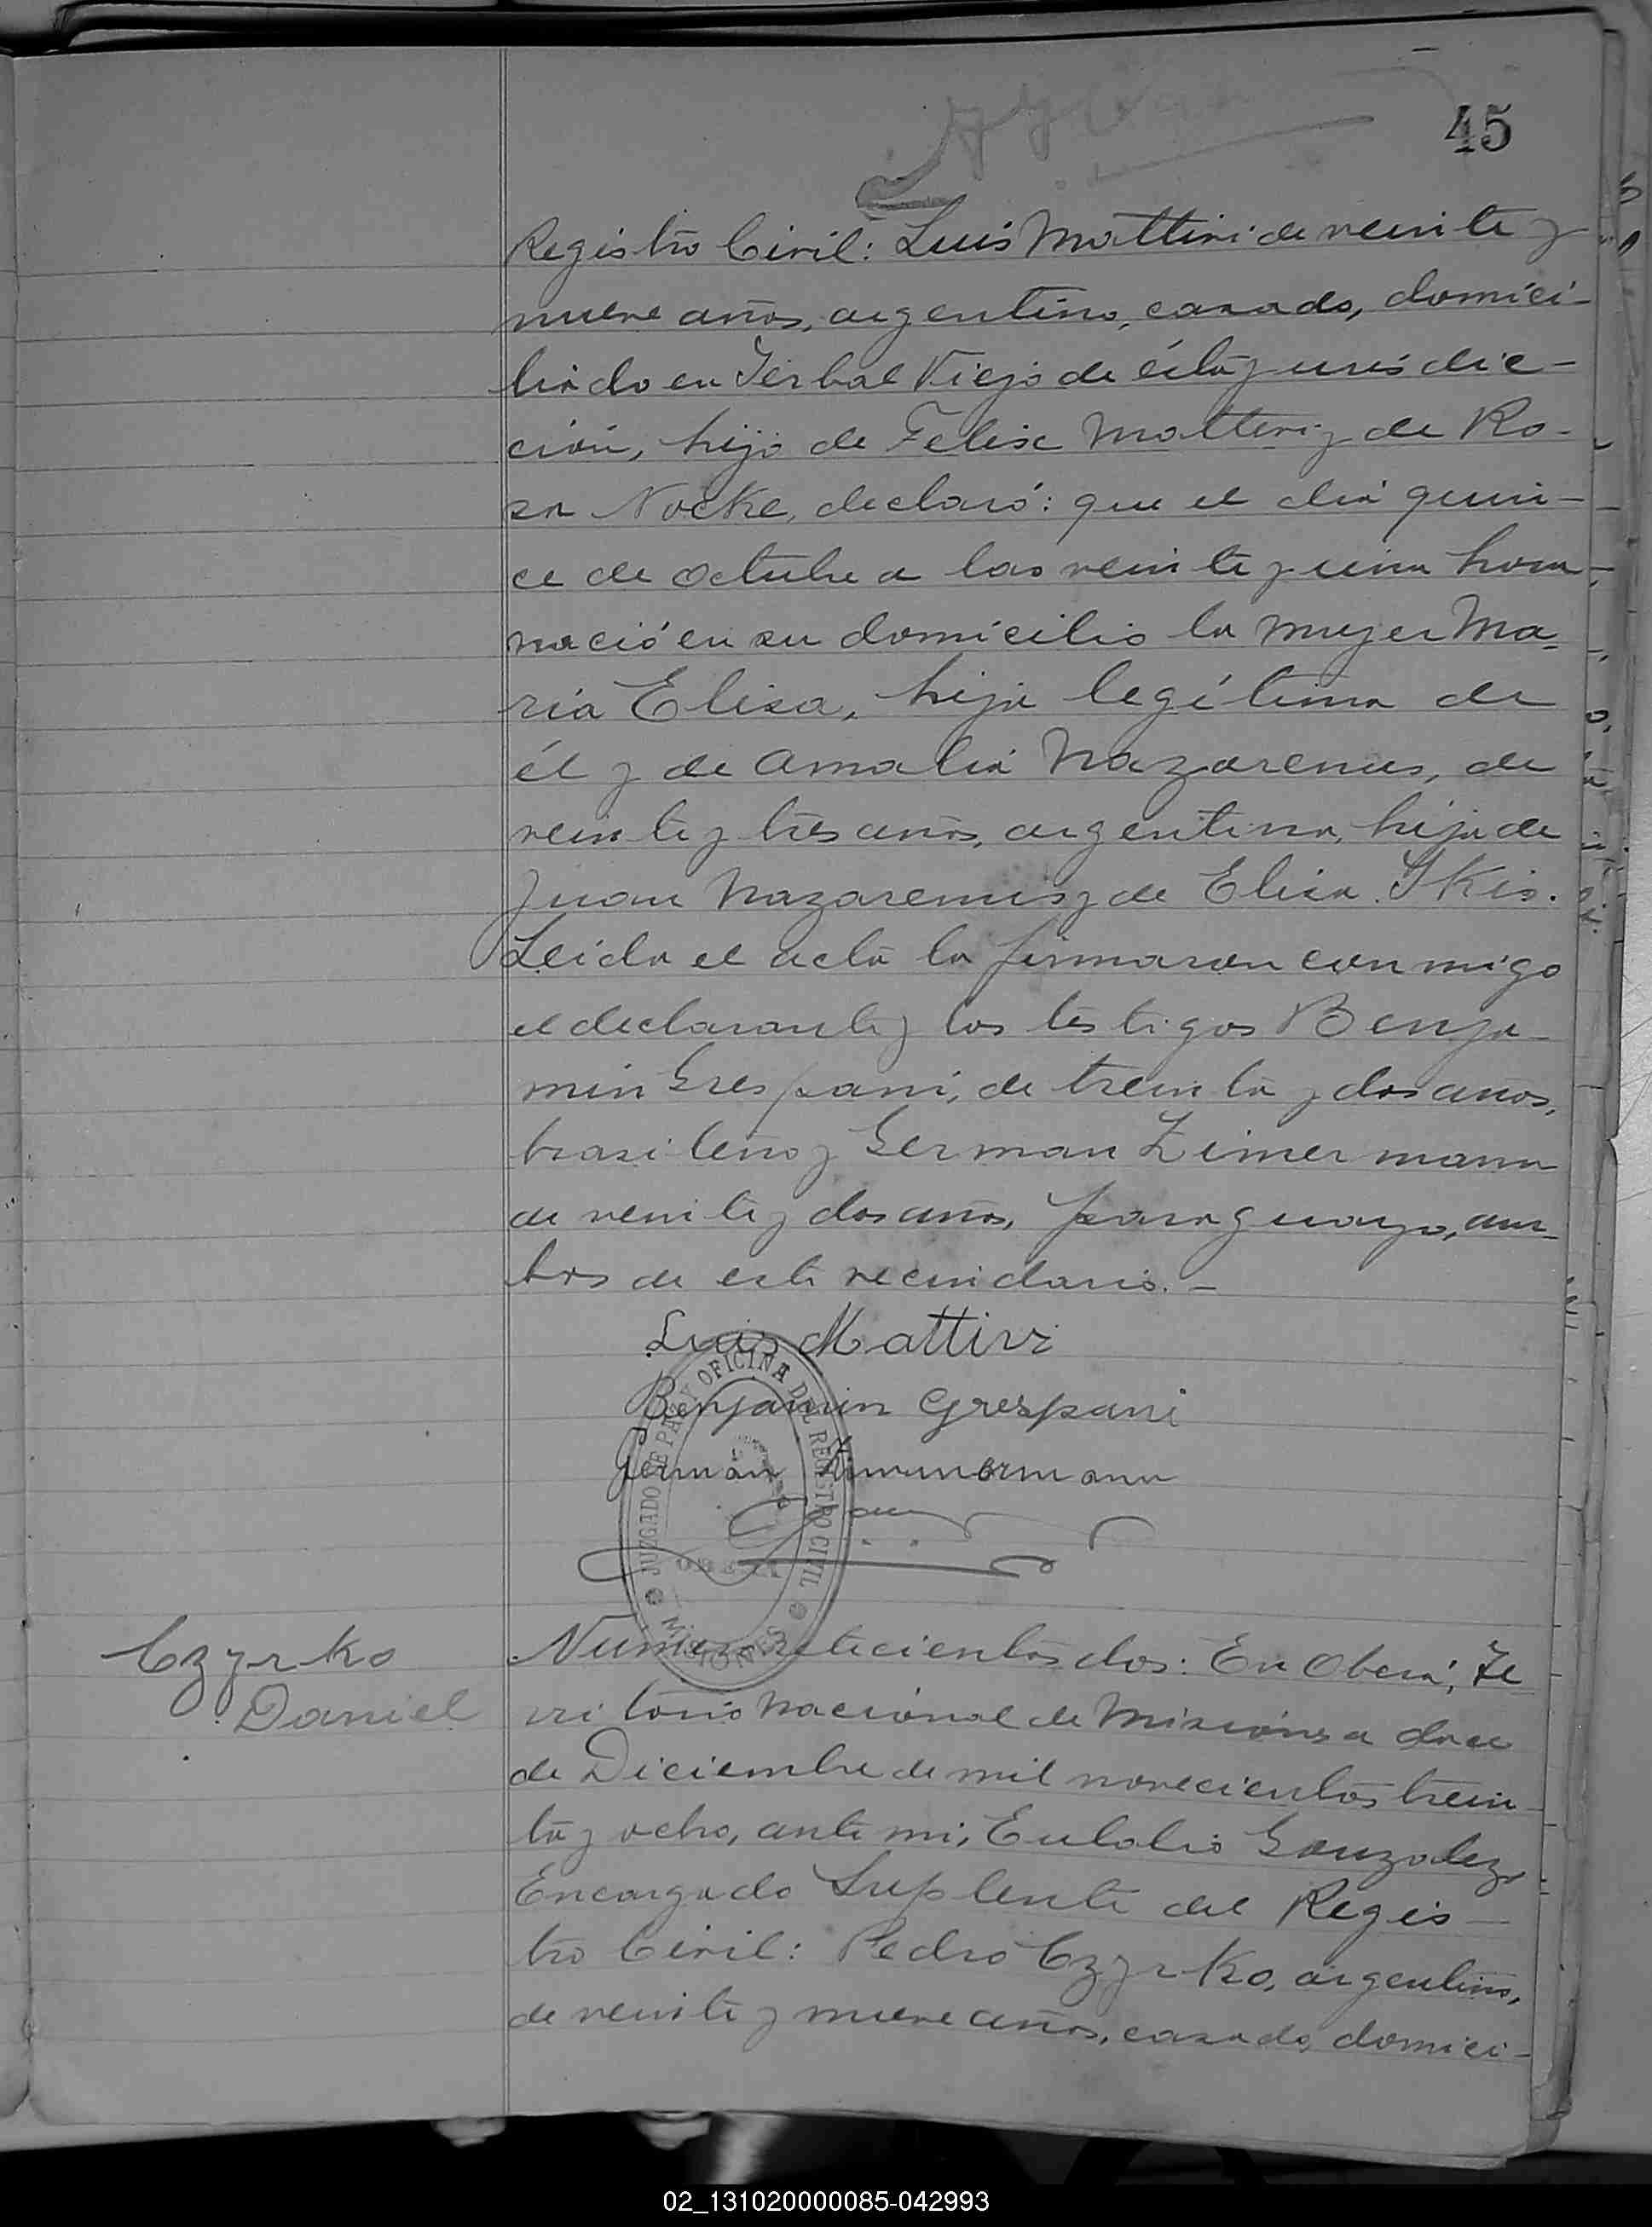 45
Registro Civil: Luis Mattivi de veinte y
nueve años, argentino, casado, domici-
liado en Yerbal Viejo de ésta jurisdic-
ción, hijo de Felix Mattivi y de Ro-
sa Nocke, declaró: que el dia quin-
ce de octubre a las veinte y una hora
nació en su domicilio la mujer Ma-
ria Elisa, hija legítima de
él y de Amalia Nazarenus, de
veinte y tres años, argentina, hija de
Juan Nazarenus y de Elisa Skis.
Leida el acta la firmaron conmigo
el declarante y los testigos Benja-
min Grespani, de treinta y dos años,
brasileño y German Zimermann
de veinte y dos años, paraguayo, am-
bos de este vecindario.-
Luis Mattivi
Benjamin Grespani
Germán Zimmermann
JUZGADO DE PAZ Y OFICINA DEL REGISTRO CIVIL
MISIONES
Czyrko
Daniel
Numero setecientos dos: En Oberá, Te
rritorio Nacional de Misiones a doce
de Diciembre de mil novecientos trein-
ta y ocho, ante mi, Eulalio Gonzalez,
Encargado Suplente del Regis-
tro Civil: Pedro Czyrko, argentino,
de veinte y nueve años, casado, domici-
02_131020000085-042993